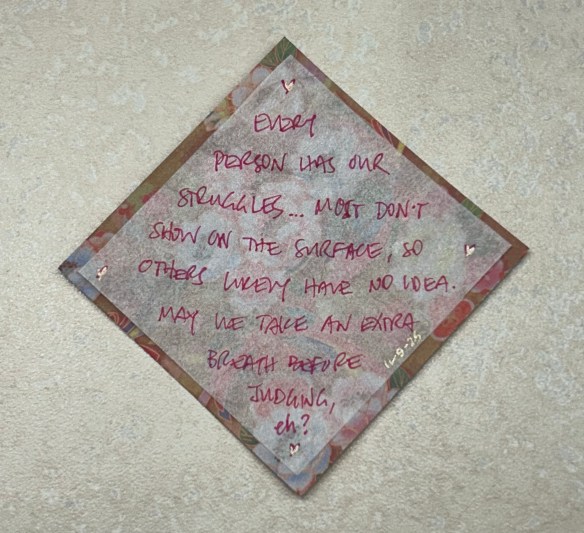 EVERY
PERSON HAS OUR
STRUGGLES... MOST DON'T
SHOW ON THE SURFACE, SO
OTHERS LIKELY HAVE NO IDEA.
MAY WE TAKE AN EXTRA
BREATH BEFORE
JUDGING,
eh?